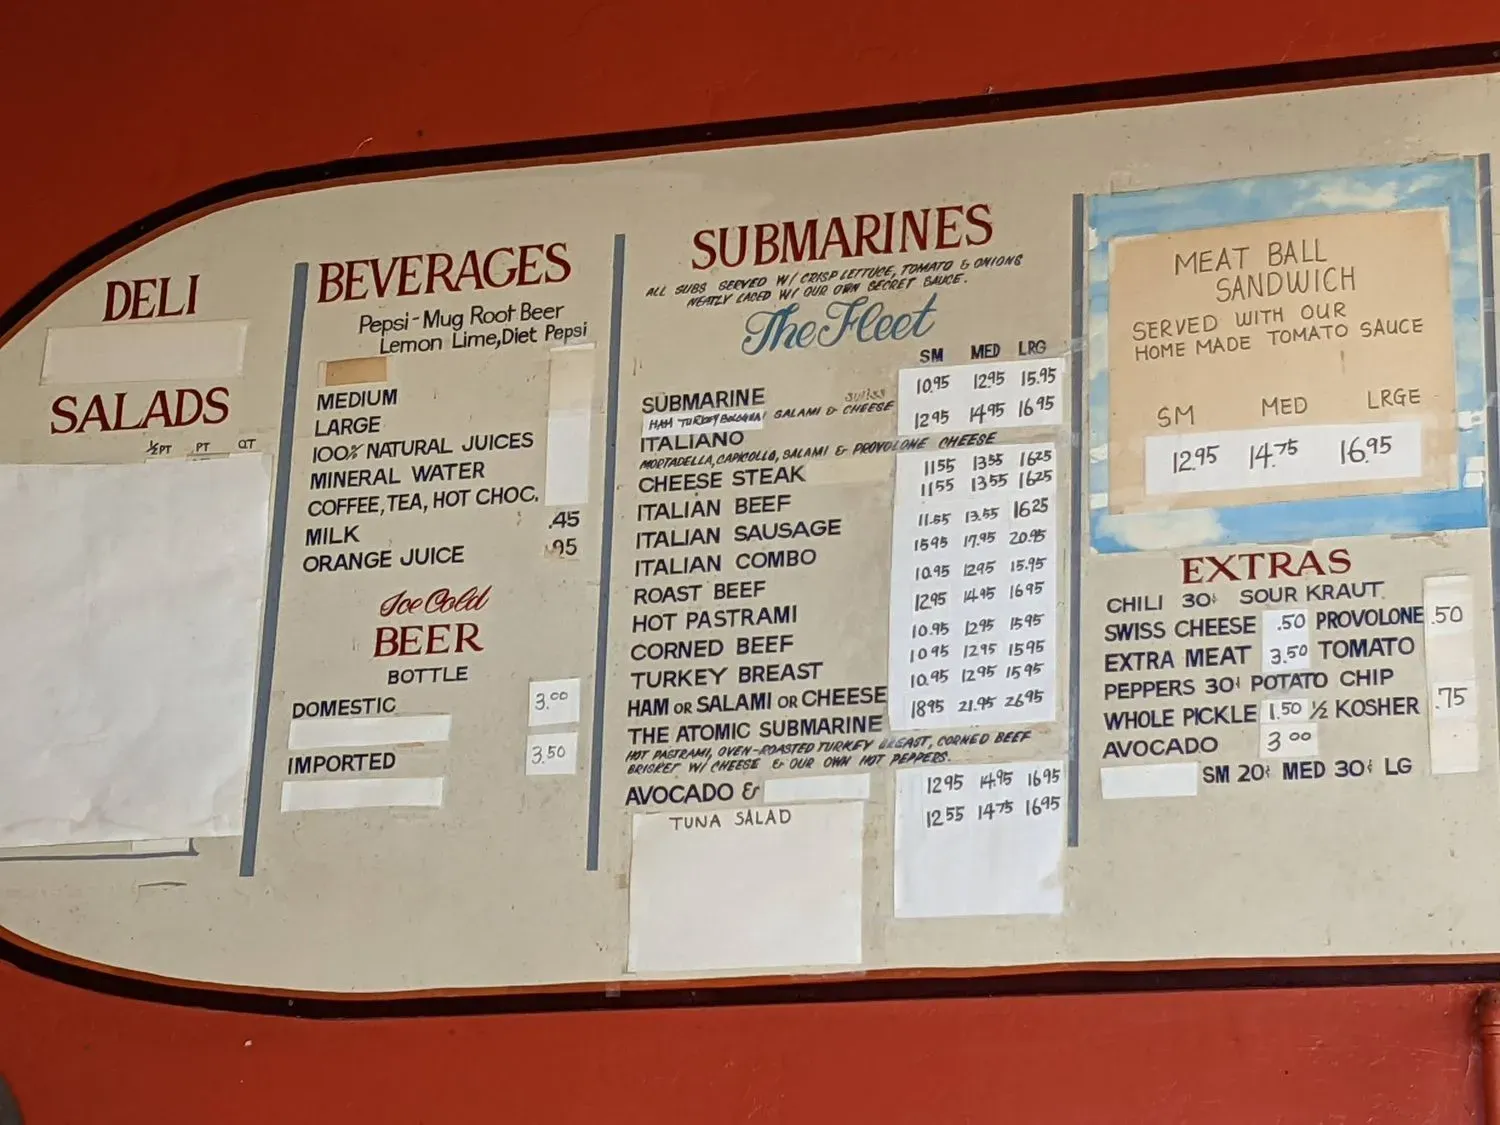 DELI
SALADS
½PT PT QT
BEVERAGES
Pepsi-Mug Root Beer
Lemon Lime, Diet Pepsi
MEDIUM
LARGE
100% NATURAL JUICES
MINERAL WATER
COFFEE, TEA, HOT CHOC.
MILK .45
ORANGE JUICE .95
Ice Cold
BEER
BOTTLE
DOMESTIC 3.00
IMPORTED 3.50
SUBMARINES
ALL SUBS SERVED W/ CRISP LETTUCE, TOMATO & ONIONS
NEATLY LACED W/ OUR OWN SECRET SAUCE.
The Fleet
SM MED LRG
SUBMARINE 10.95 12.95 15.95
SWISS
HAM TURKEY BOLOGNA SALAMI & CHEESE
ITALIANO 12.95 14.95 16.95
MORTADELLA, CAPICOLLO, SALAMI & PROVOLONE CHEESE
CHEESE STEAK 11.55 13.55 16.25
ITALIAN BEEF 11.55 13.55 16.25
ITALIAN SAUSAGE 11.55 13.55 16.25
ITALIAN COMBO 15.95 17.95 20.95
ROAST BEEF 10.95 12.95 15.95
HOT PASTRAMI 12.95 14.95 16.95
CORNED BEEF 10.95 12.95 15.95
TURKEY BREAST 10.95 12.95 15.95
HAM OR SALAMI OR CHEESE 10.95 12.95 15.95
THE ATOMIC SUBMARINE 18.95 21.95 26.95
HOT PASTRAMI, OVEN-ROASTED TURKEY BREAST, CORNED BEEF
BRISKET W/ CHEESE & OUR OWN HOT PEPPERS.
AVOCADO & 12.95 14.95 16.95
TUNA SALAD 12.55 14.75 16.95
MEAT BALL
SANDWICH
SERVED WITH OUR
HOME MADE TOMATO SAUCE
SM MED LRGE
12.95 14.75 16.95
EXTRAS
CHILI 30¢ SOUR KRAUT
SWISS CHEESE .50 PROVOLONE .50
EXTRA MEAT 3.50 TOMATO
PEPPERS 30¢ POTATO CHIP
WHOLE PICKLE 1.50 ½ KOSHER .75
AVOCADO 3.00
SM 20¢ MED 30¢ LG